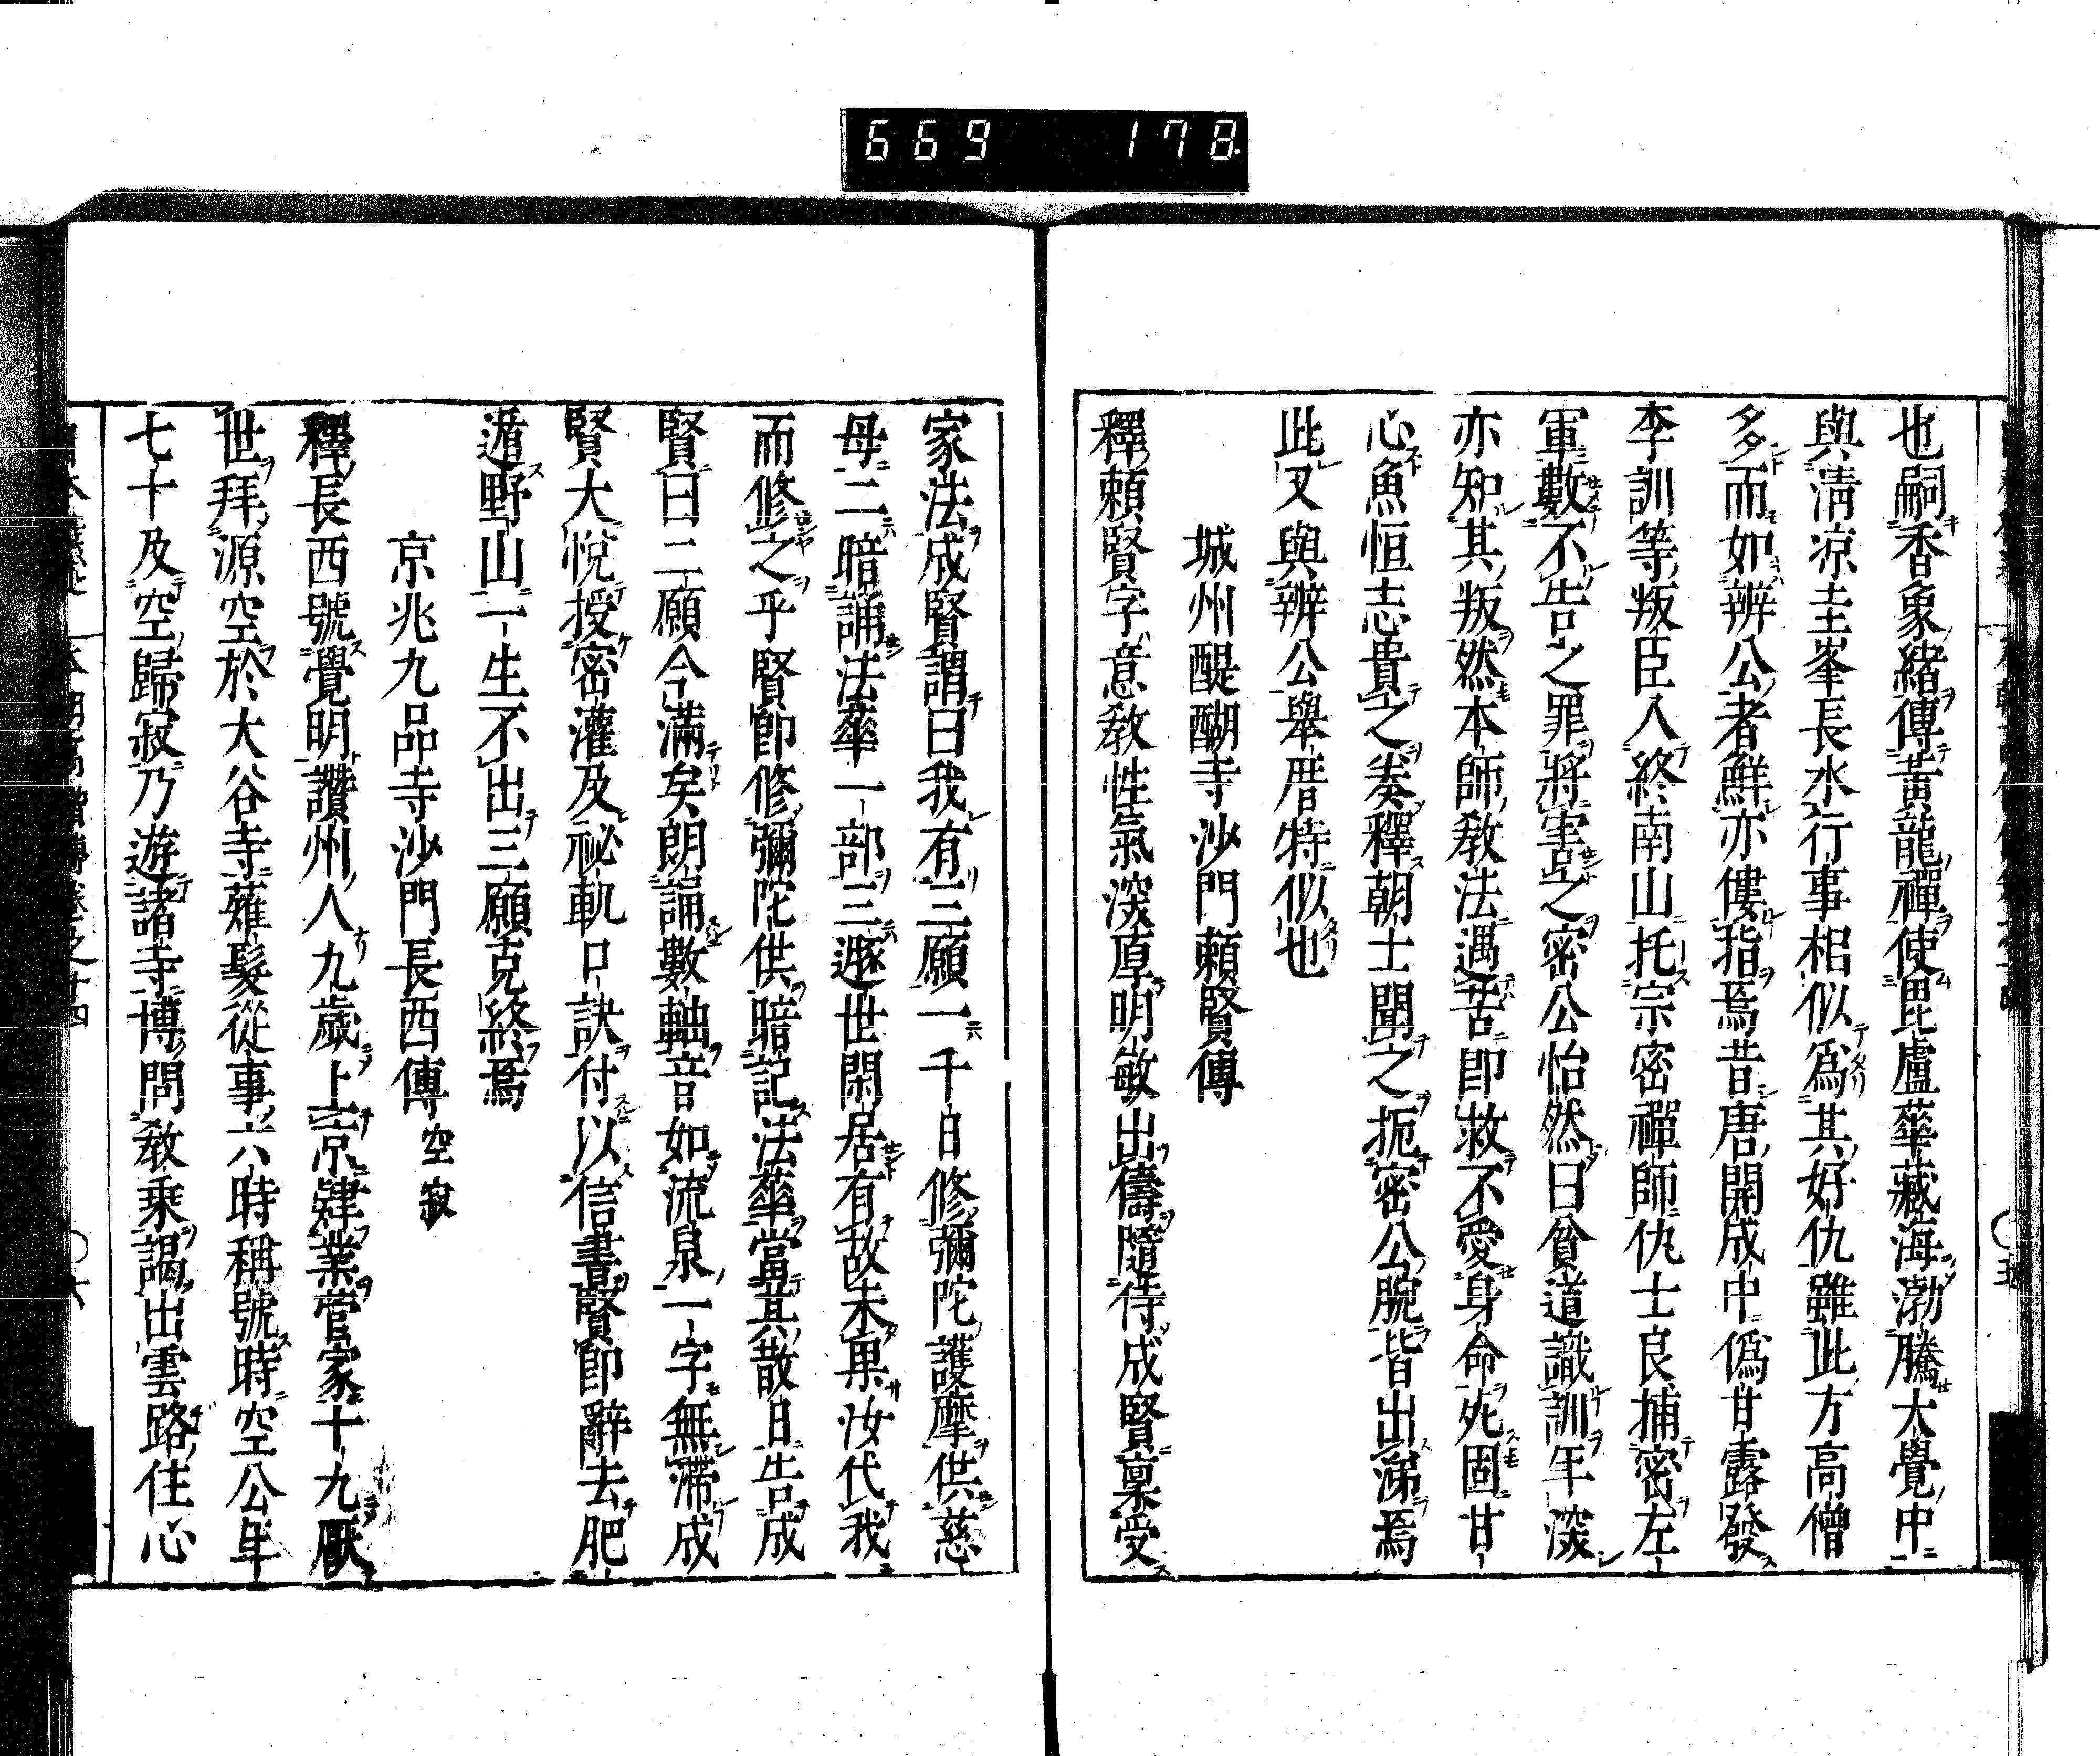 669 178
也嗣香象緒傳黃龍禪使毘盧華藏海渤騰大覺中
與淸凉圭峯長水行事相似爲其好仇雖此方高僧
多而如辨公者鮮亦僂指焉昔唐開成中僞甘露發
李訓等叛臣入終南山托宗密禪師仇士良捕密左
軍數不吿之罪將害之密公怡然曰貧道識訓年深
亦知其叛然本師敎法遇苦卽救不愛身命死固甘
心魚恒志貴之奏釋朝士聞之扼密公腕皆出涕焉
此又與辨公舉厝特似也
城州醍醐寺沙門賴賢傳
釋賴賢字意敎性氣深厚明敏出儔隨侍成賢稟受
家法成賢謂曰我有三願一千日修彌陀護摩供慈
母二暗誦法華一部三遯世閑居有故未果汝代我
而修之乎賢卽修彌陀供暗記法華當其散日吿成
賢曰二願今滿矣朗誦數軸音如流泉一字無滯成
賢大悅授密灌及祕軌口訣付以信書賢卽辭去肥
遁野山一生不出三願克終焉
京兆九品寺沙門長西傳 空寂
釋長西號覺明讚州人九歲上京肄業菅家十九厭
世拜源空於大谷寺薙髮從事六時稱號時空公年
七十及空歸寂乃遊諸寺博問敎乘謁出雲路住心